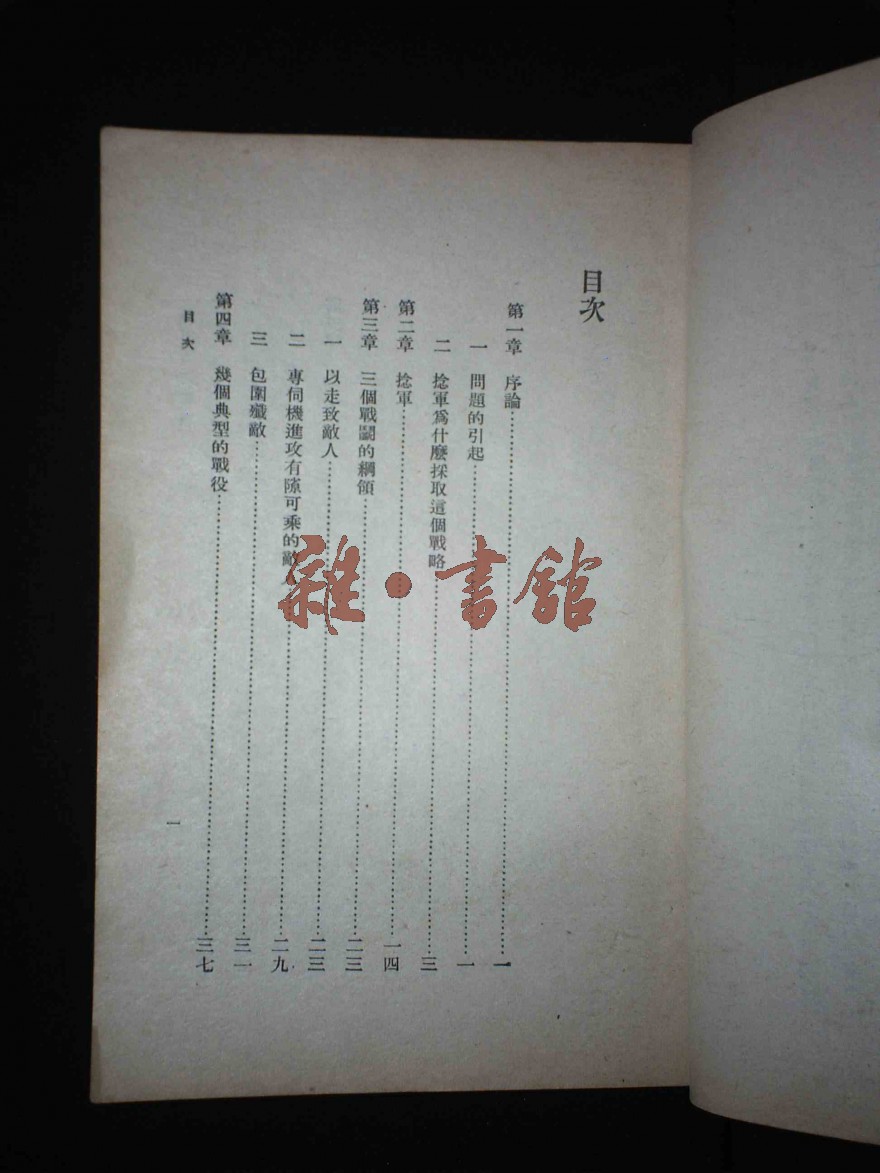 目次
第一章 序論……一
一 問題的引起……一
二 捻軍爲什麼採取這個戰略……三
第二章 捻軍……一四
第三章 三個戰鬭的綱領……二三
一 以走致敵人……二三
二 專伺機進攻有隙可乘的敵人……二九
三 包圍殲敵……三一
第四章 幾個典型的戰役……三七
目次
一
雜·書館